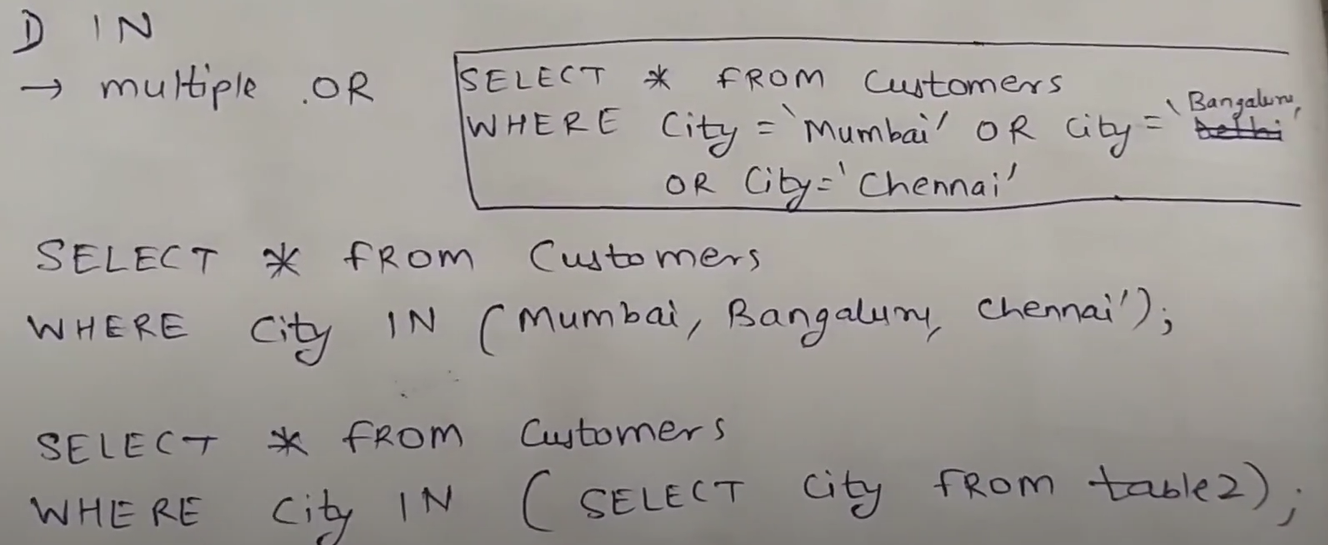 D IN
→ multiple .OR
SELECT * FROM Customers
WHERE City = 'Mumbai' OR City = 'Bangaluru,'
OR City = 'Chennai'
SELECT * FROM Customers
WHERE City IN (Mumbai, Bangaluru, Chennai');
SELECT * FROM Customers
WHERE City IN (SELECT City FROM table2);